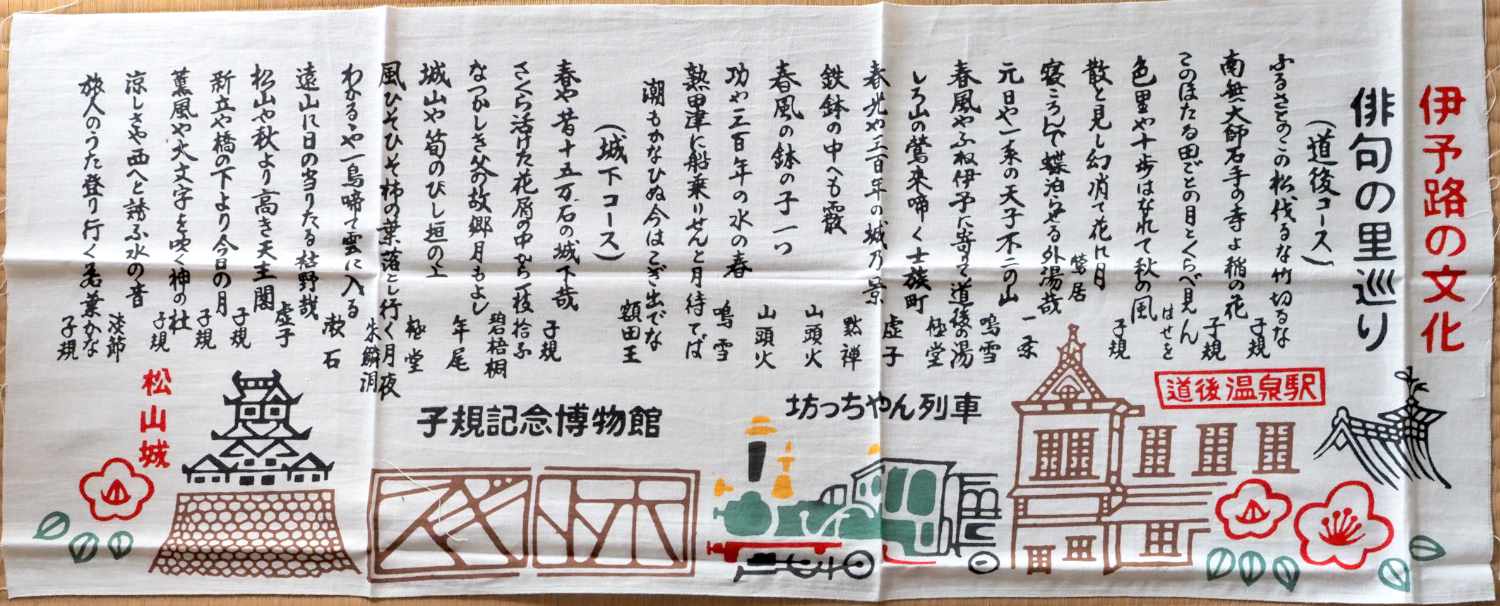 伊予路の文化
俳句の里巡り
(道後コース)
ふるさとのこの松伐るな竹切るな
子規
南無大師石手の寺よ稲の花
子規
このほたる田ごとの月とくらべ見ん
はせを
色里や十歩はなれて秋の風
子規
散と見し幻消て花に月
鶯居
寝ころんで蝶泊らせる外湯哉
一茶
元日や一系の天子不二の山
鳴雪
春風やふね伊予に寄りて道後の湯
極堂
しろ山の鶯来啼く士族町
虚子
春光や三百年の城乃景
黙禅
鉄鉢の中へも霰
山頭火
春風の鉢の子一つ
山頭火
功や三百年の水の春
鳴雪
熟田津に船乗りせんと月待てば
潮もかなひぬ今はこぎ出でな
額田王
(城下コース)
春や昔十五万石の城下哉
子規
さくら活けた花屑の中から一枝拾ふ
碧梧桐
なつかしき父の故郷月もよし
年尾
城山や筍のびし垣の上
極堂
風ひそひそ柿の葉落とし行く月夜
朱鱗洞
わかるゝや一鳥啼て雲に入る
漱石
遠山に日の当りたる枯野哉
虚子
松山や秋より高き天主閣
子規
新立や橋の下より今日の月
子規
薫風や大文字を吹く神の社
子規
涼しさや西へと誘ふ水の音
淡節
旅人のうた登り行く若葉かな
子規
道後温泉駅
坊っちやん列車
子規記念博物館
松山城